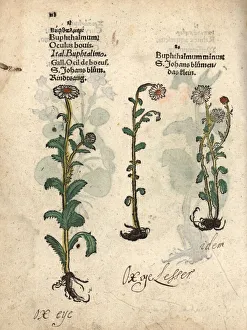 Buphthalmum:
Oculus bouis.
Ital. Buphtalmo.
Gall. Oeil de boeuf.
S. Johans blům.
Rindsaug.
Buphthalmum minus:
S. Johans blůmen
das klein.
idem
Ox eye Lesser
Ox eye